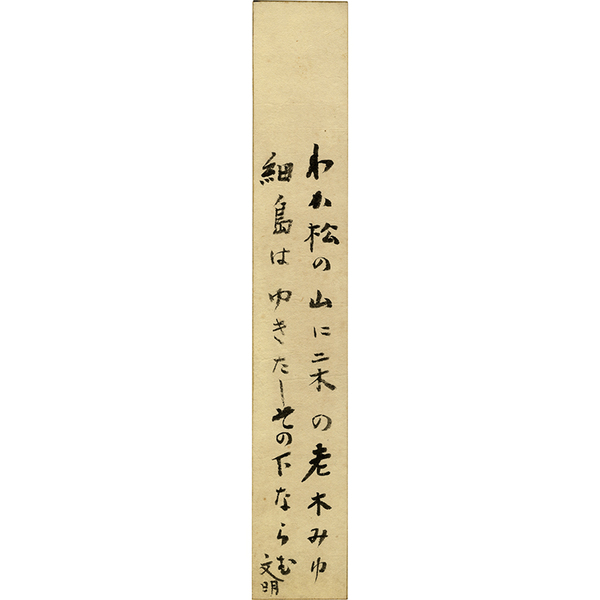 わか松の山に二木の老木みゆ
細島はゆきたしその下ならむ
文明